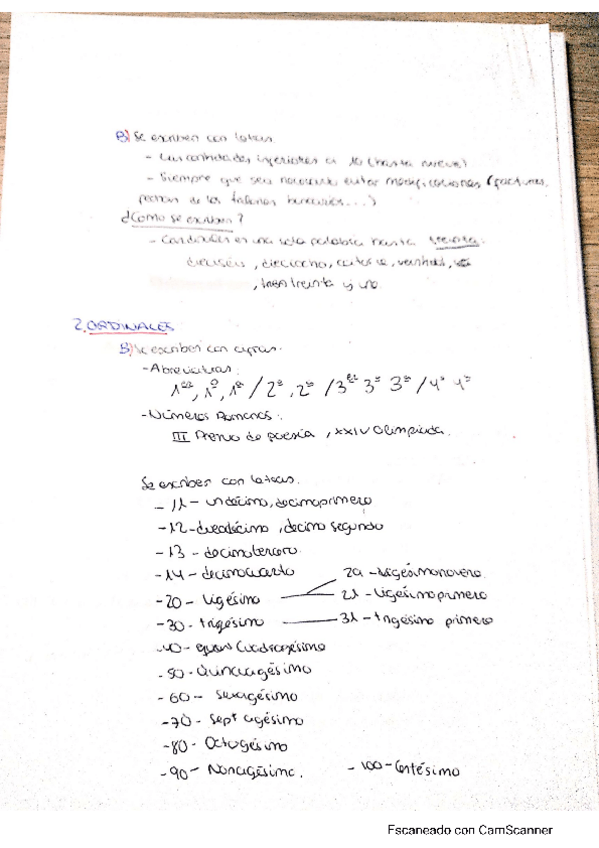 B) Se escriben con letras.
- Las cantidades inferiores a 10 (hasta nueve)
- Siempre que sea necesario evitar modificaciones (facturas,
fechas de los talones bancarios...)
¿Como se escriben?
- Cardinales en una sola palabra hasta treinta:
dieciséis, dieciocho, catorce, veintidós,
, treinta y uno.
2. ORDINALES
B) Se escriben con cifras.
- Abreviaturas.
1er, 1º, 1ª / 2º, 2ª / 3er 3º 3ª / 4º 4ª
- Números Romanos.
III Premio de poesía, XXIV Olimpiada.
Se escriben con letras.
- 11 - undécimo, decimoprimero
- 12 - duodécimo, decimo segundo
- 13 - decimotercero.
- 14 - decimocuarto
29 - vigésimonoveno.
- 20 - Vigésimo
21 - Vigésimoprimero
- 30 - trigésimo
31 - trigésimo primero
- 40 - Cuadragésimo
- 50 - Quincuagésimo
- 60 - Sexagésimo
- 70 - Septuagésimo
- 80 - Octogésimo
- 90 - Nonagésimo.
- 100 - Centésimo
Escaneado con CamScanner